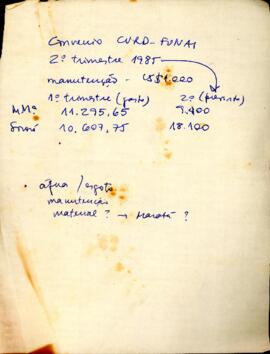 Convenio CVRD-FUNAI
2º trimestre 1985
manutenção -
1º trimestre (gasto) 2º (previsto)
11.295,65 9.900
10.607,75 18.100
água / esgoto
manutenção
material ? →